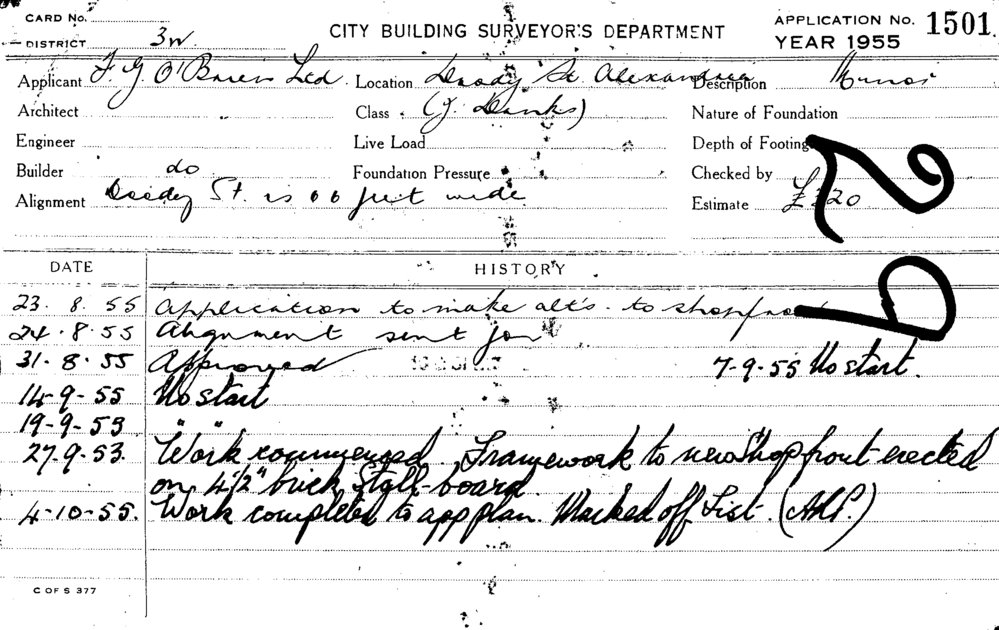 CARD No.
CITY BUILDING SURVEYOR'S DEPARTMENT
APPLICATION No. 1501
DISTRICT 3W.
YEAR 1955
Applicant F. G. O'Brien Ltd. Location Doody St. Alexandria Description Minor
Architect Class (J. Danks) Nature of Foundation
Engineer Live Load Depth of Footing
Builder do Foundation Pressure Checked by
Alignment Doody St. is 66 feet wide Estimate
DATE HISTORY
23. 8. 55 Application to make alt's. to shopfront
24. 8. 55 Alignment sent for
31. 8. 55 Approved 7-9-55 No start.
14-9-55 No start
19-9-53 " "
27.9.53. Work commenced. Framework to new shop front erected
on 4½" brick stall-board.
4-10-55. Work completed to app plan. Marked off List.
C OF S 377